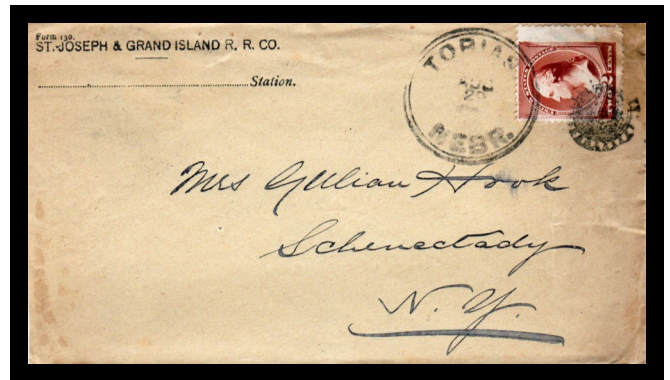 Form 130.
ST. JOSEPH & GRAND ISLAND R. R. CO.
Station.
TOBIAS
NEBR.
TWO 2 CENTS
Mrs Gillian Hook
Schenectady
N. Y.